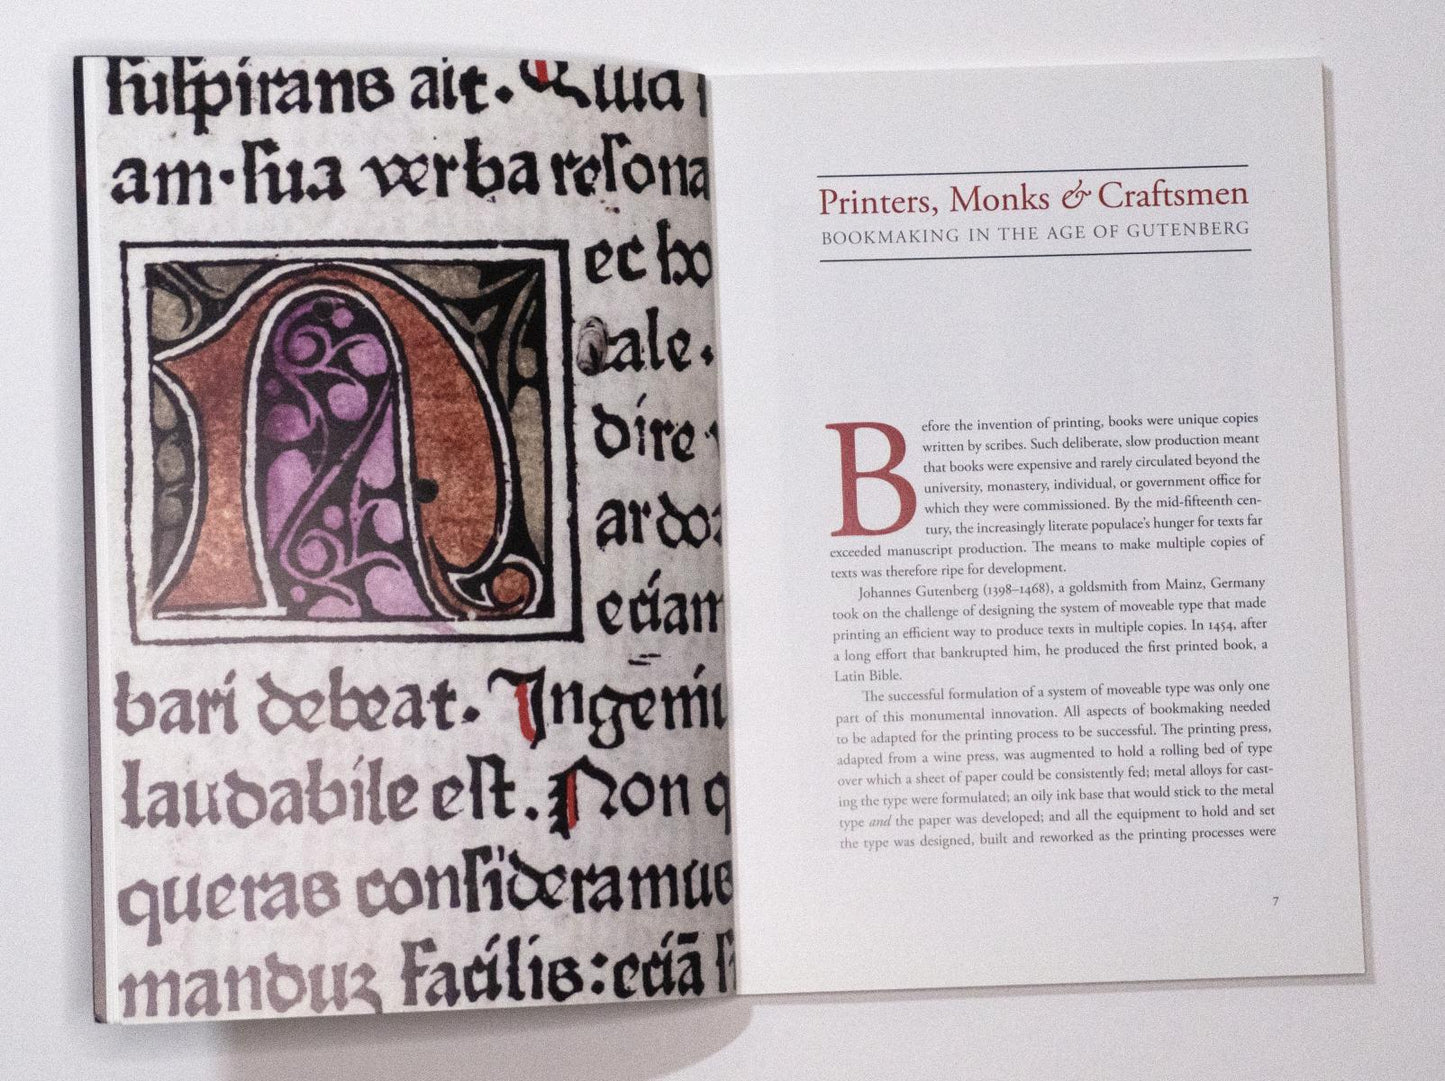 suspirans ait. Quia
am. sua verba resona
ec ho
tale.
dire
ardoꝛ
eciam
bari debeat. Ingeniu
laudabile est. Non q
queras consideramus
manduꝫ facilis: eciā si
Printers, Monks & Craftsmen
BOOKMAKING IN THE AGE OF GUTENBERG
Before the invention of printing, books were unique copies
written by scribes. Such deliberate, slow production meant
that books were expensive and rarely circulated beyond the
university, monastery, individual, or government office for
which they were commissioned. By the mid-fifteenth cen-
tury, the increasingly literate populace's hunger for texts far
exceeded manuscript production. The means to make multiple copies of
texts was therefore ripe for development.
Johannes Gutenberg (1398–1468), a goldsmith from Mainz, Germany
took on the challenge of designing the system of moveable type that made
printing an efficient way to produce texts in multiple copies. In 1454, after
a long effort that bankrupted him, he produced the first printed book, a
Latin Bible.
The successful formulation of a system of moveable type was only one
part of this monumental innovation. All aspects of bookmaking needed
to be adapted for the printing process to be successful. The printing press,
adapted from a wine press, was augmented to hold a rolling bed of type
over which a sheet of paper could be consistently fed; metal alloys for cast-
ing the type were formulated; an oily ink base that would stick to the metal
type and the paper was developed; and all the equipment to hold and set
the type was designed, built and reworked as the printing processes were
7